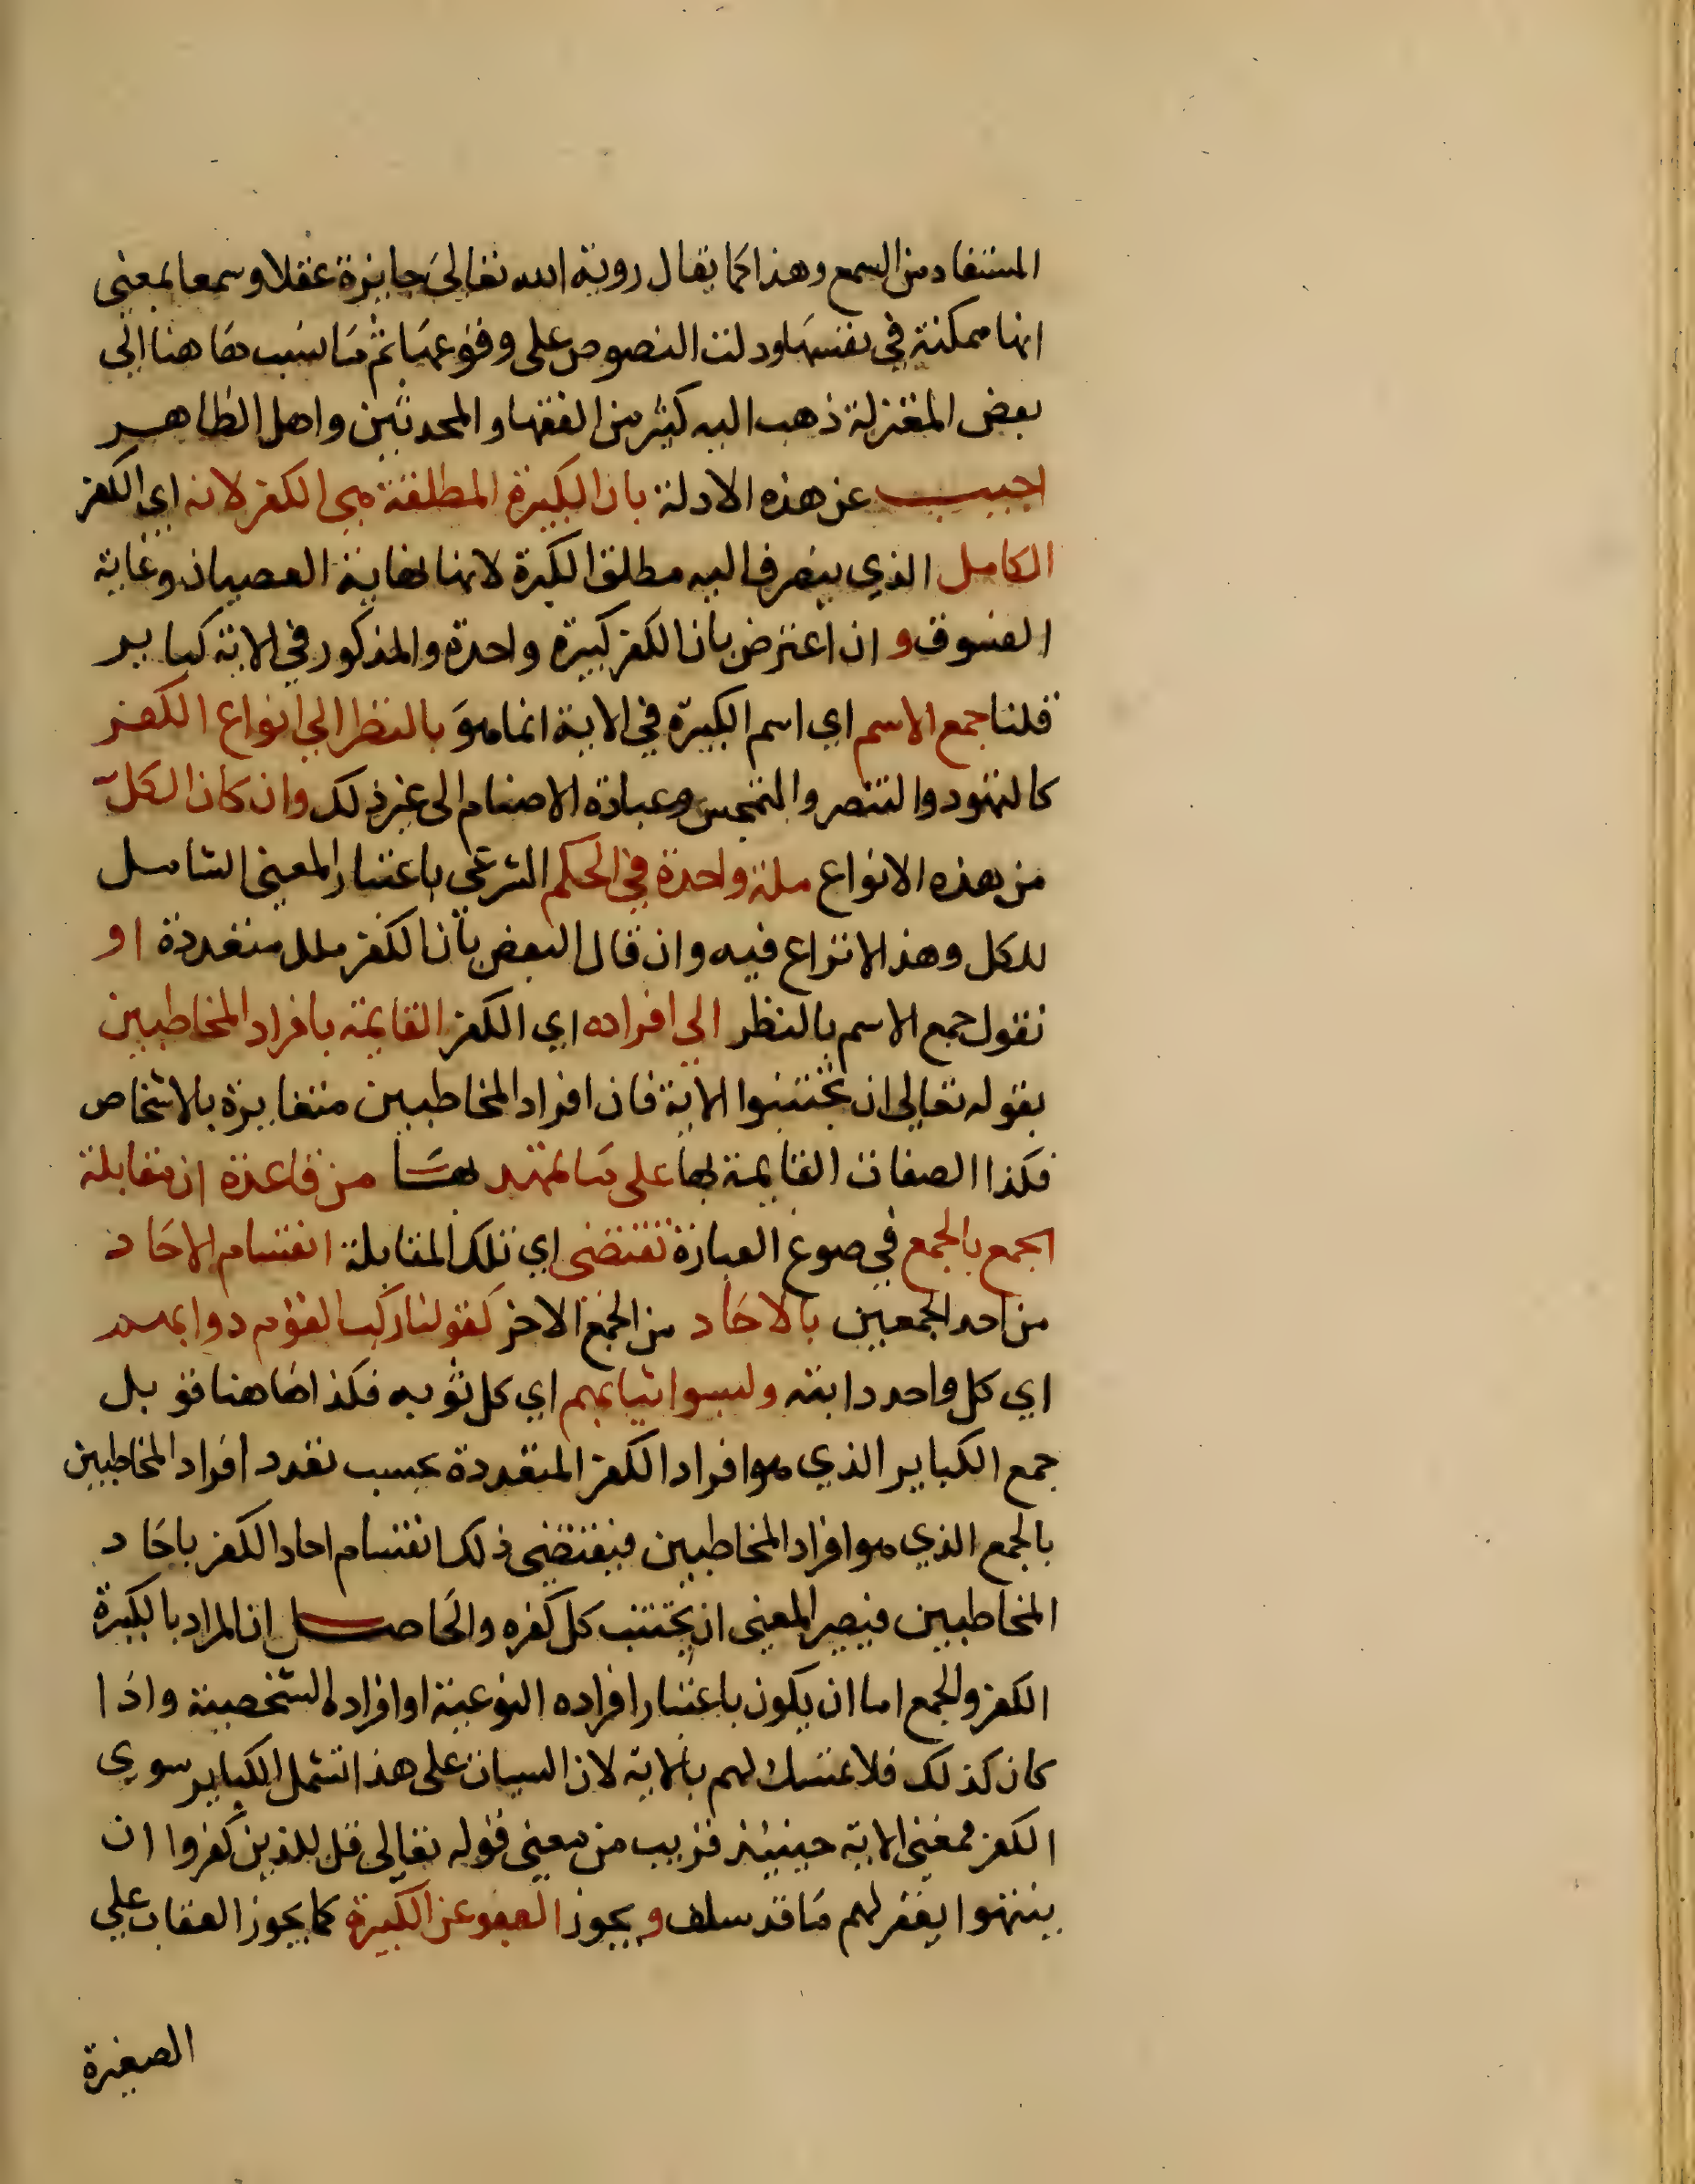 المستفاد من السمع وهذا كما يقال روية الله تعالى جايزة عقلا وسمعا بمعنى
انها ممكنة في نفسها ودلت النصوص على وقوعها ثم ما نسب هاهنا الى
بعض المعتزلة ذهب اليه كثير من الفقها والمحدثين واهل الظاهر
اجيب عن هذه الادلة بان الكبيرة المطلقة هي الكفر لانه اي الكفر
الكامل الذي ينصرف اليه مطلق الكبيرة لانها نهاية العصيان وغاية
الفسوق و ان اعترض بان الكفر كبيرة واحدة والمذكور في الاية كباير
قلنا جمع الاسم اي اسم الكبيرة في الاية انما هو بالنظر الي انواع الكفر
كالتهود والتنصر والتمجس وعبادة الاصنام الى غير ذلك وان كان الكل
من هذه الانواع ملة واحدة في الحكم الشرعي باعتبار المعنى الشامل
للكل وهذا لا نزاع فيه وان قال البعض بان الكفر ملل متعددة او
نقول جمع الاسم بالنظر الي افراده اي الكفر القايمة بافراد المخاطبين
بقوله تعالى ان تجتنبوا الاية فان افراد المخاطبين متغايرة بالاشخاص
فكذا الصفات القايمة بها على ما تمهد من قاعدة ان مقابلة
الجمع بالجمع في صوغ العبارة تقتضي اي تلك المقابلة انقسام الاحاد
من احد الجمعين بالاحاد من الجمع الاخر كقولنا ركب القوم دوابهم
اي كل واحد دابته ولبسوا ثيابهم اي كل ثوبه فكذا هاهنا قوبل
جمع الكباير الذي هو افراد الكفر المتعددة بحسب تعدد افراد المخاطبين
بالجمع الذي هو افراد المخاطبين فيقتضي ذلك انقسام احاد الكفر باحاد
المخاطبين فيصير المعنى ان يجتنب كل كفره والحاصل ان المراد بالكبيرة
الكفر والجمع اما ان يكون باعتبار افراده النوعية او افراده الشخصية واذا
كان كذلك فلا تمسك لهم بالاية لان السيات على هذا تشمل الكباير سوي
الكفر فمعنى الاية حينيئذ قريب من معنى قوله تعالى قل للذين كفروا ان
ينتهوا يغفر لهم ما قد سلف و يجوز العفو عن الكبيرة كما يجوز العقاب علي
الصغيرة